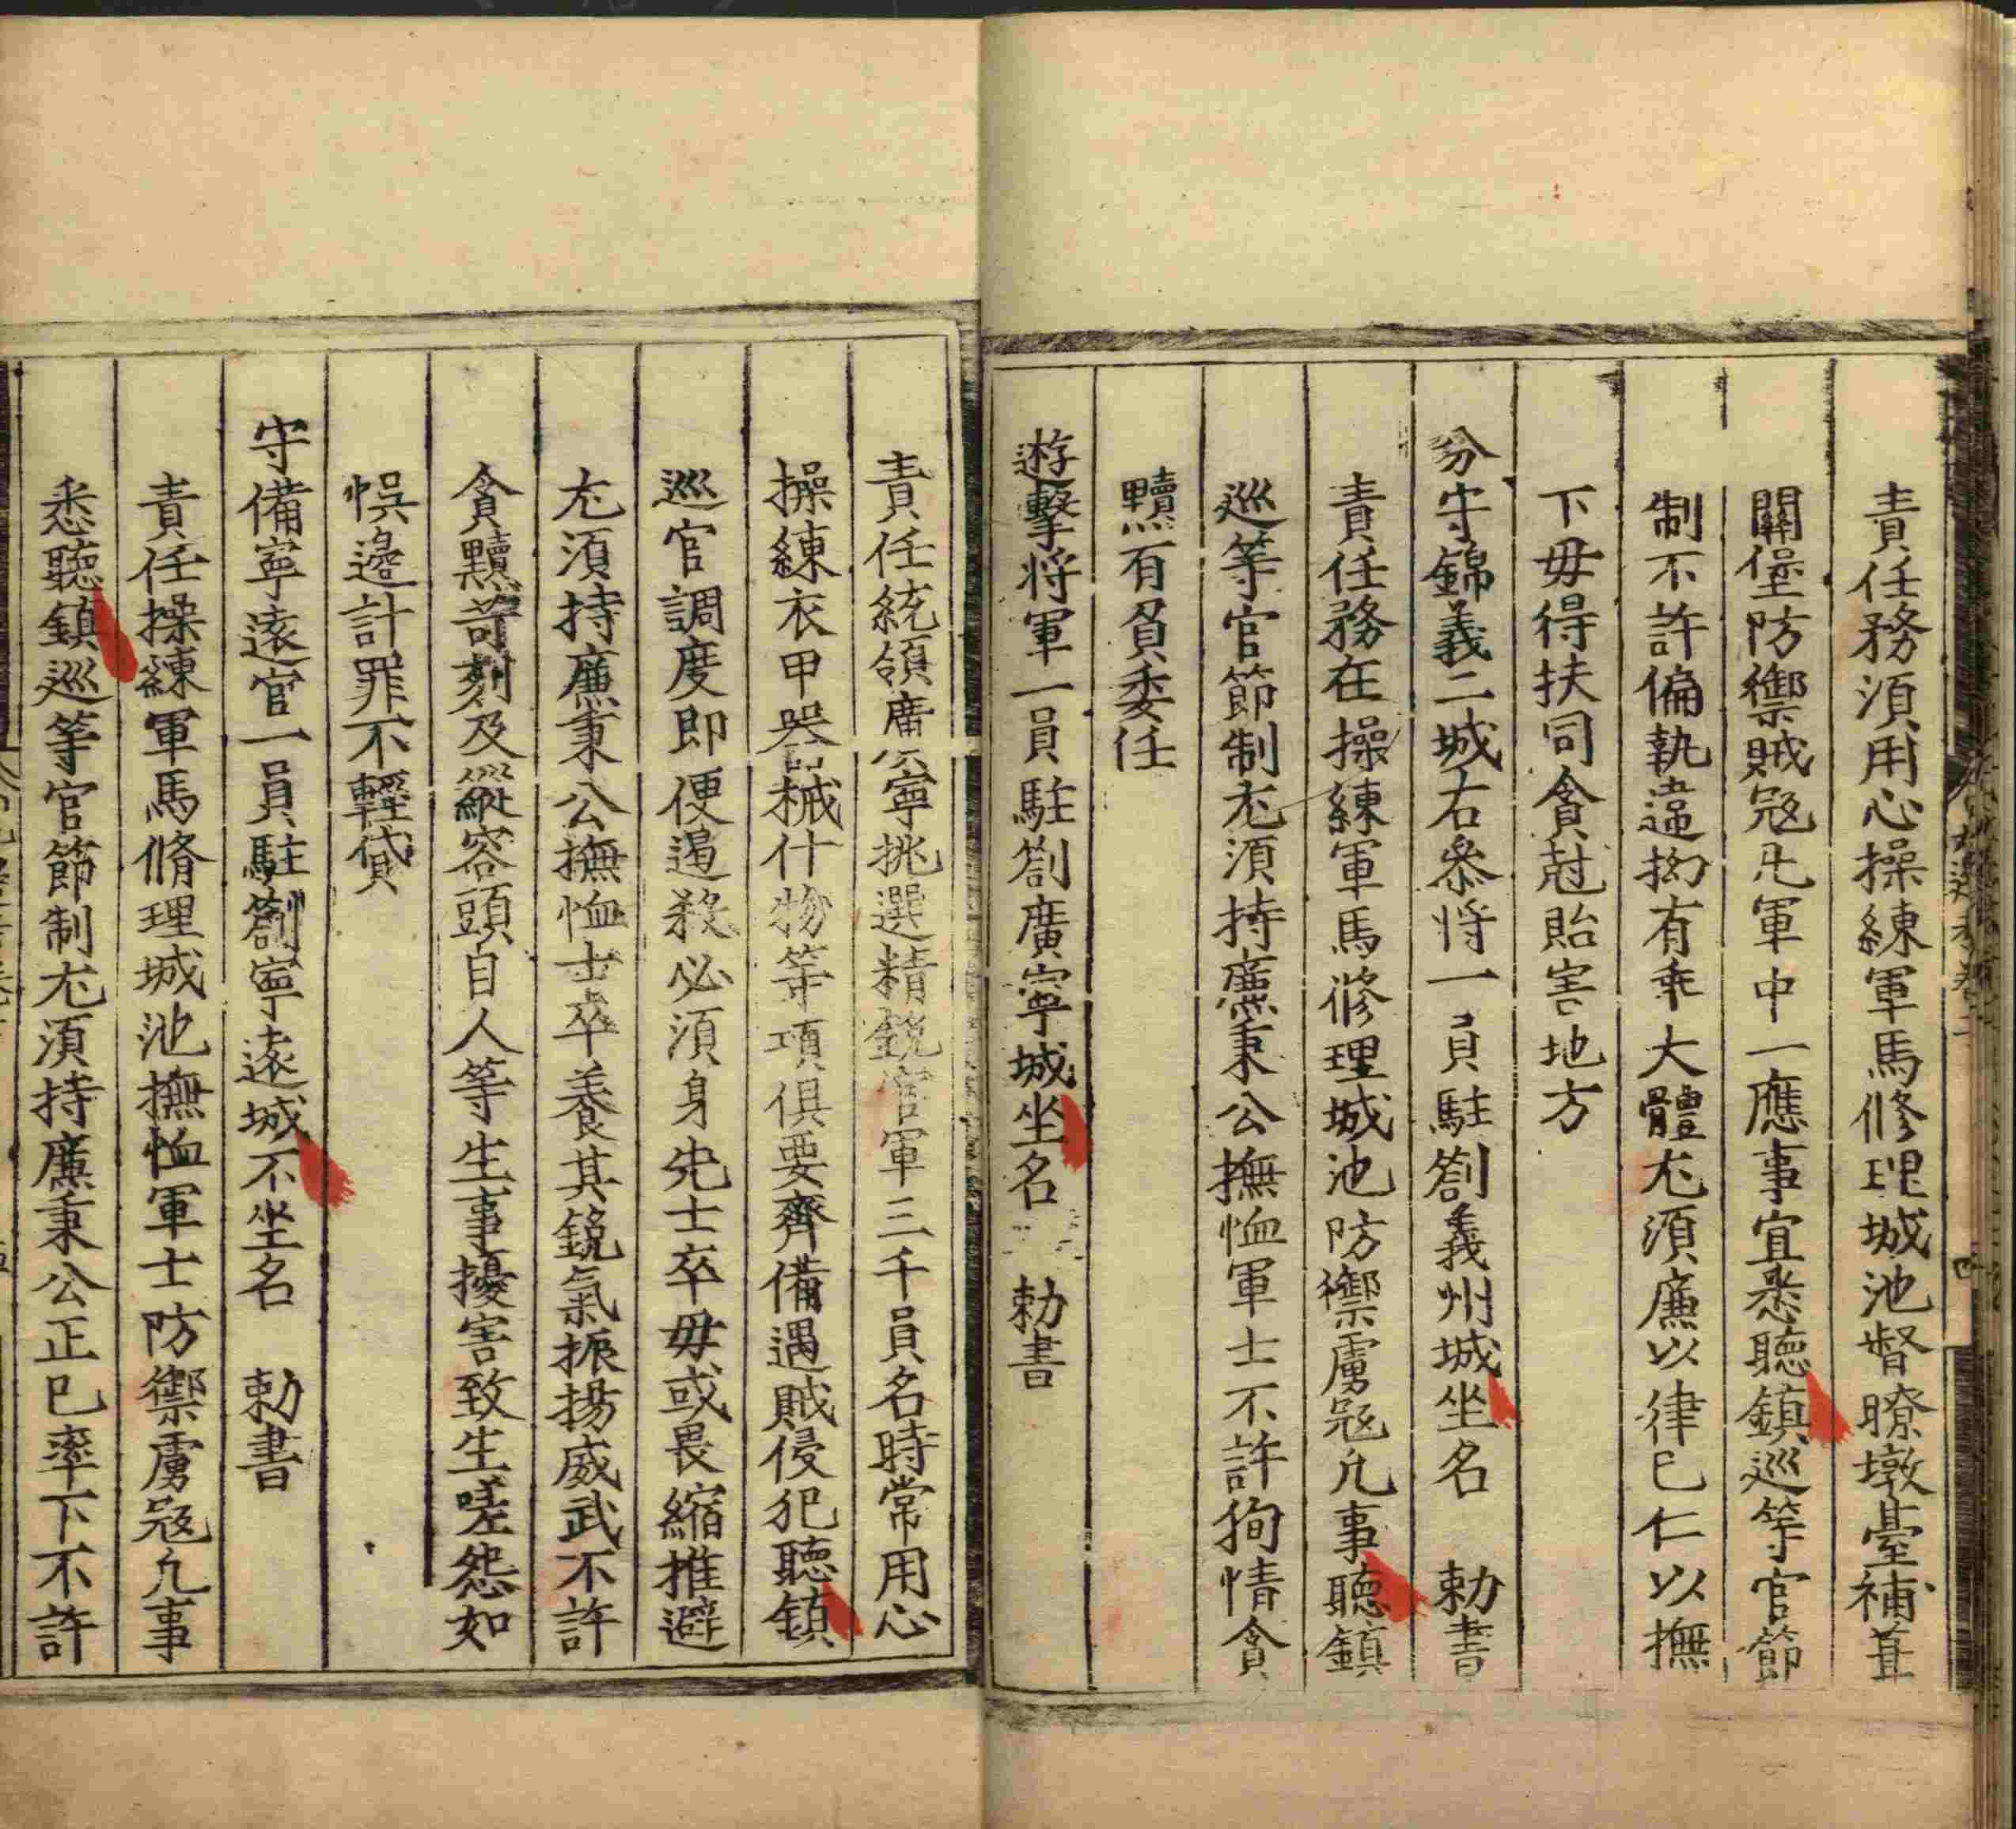 責任務湏用心操練軍馬修理城池督瞭墩臺補葺
關堡防禦賊寇凡軍中一應事宜悉聽鎮巡等官節
制不許偏執違拗有乖大體尤湏廉以律己仁以撫
下毋得扶同貪尅貽害地方
分守錦義二城右叅將一員駐劄義州城坐名　勅書
責任務在操練軍馬修理城池防禦虜寇凡事聽鎮
巡等官節制尤湏持廉秉公撫恤軍士不許狥情貪
黷有負委任
遊擊將軍一員駐劄廣寧城坐名　勅書
責任統領廣寧挑選精銳官軍三千員名時常用心
操練衣甲器械什物等項俱要齊備遇賊侵犯聽鎮
巡官調度即便遏殺必湏身先士卒毋或畏縮推避
尤湏持廉秉公撫恤士卒養其銳氣振揚威武不許
貪黷苛刻及縱容頭目人等生事擾害致生嗟怨如
悞邊計罪不輕貸
守備寧遠官一員駐劄寧遠城不坐名　勅書
責任操練軍馬脩理城池撫恤軍士防禦虜寇凡事
悉聽鎮巡等官節制尤湏持廉秉公正己率下不許